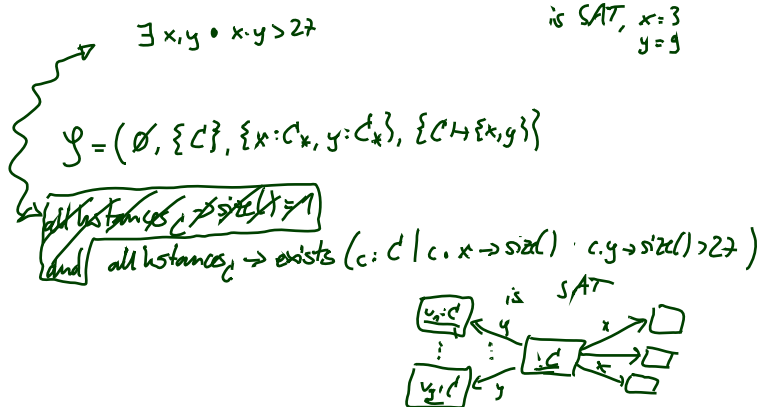 ∃ x, y • x · y > 27
is SAT, x = 3
y = 9
𝒮 = (∅, {C}, {x : C*, y : C*}, {C ↦ {x, y}})
allInstances_C → size() = 1
and allInstances_C → exists (c : C | c . x → size() · c . y → size() > 27)
is SAT
v₁ : C y x
⋮ ⋮ : C
v₉ : C y x